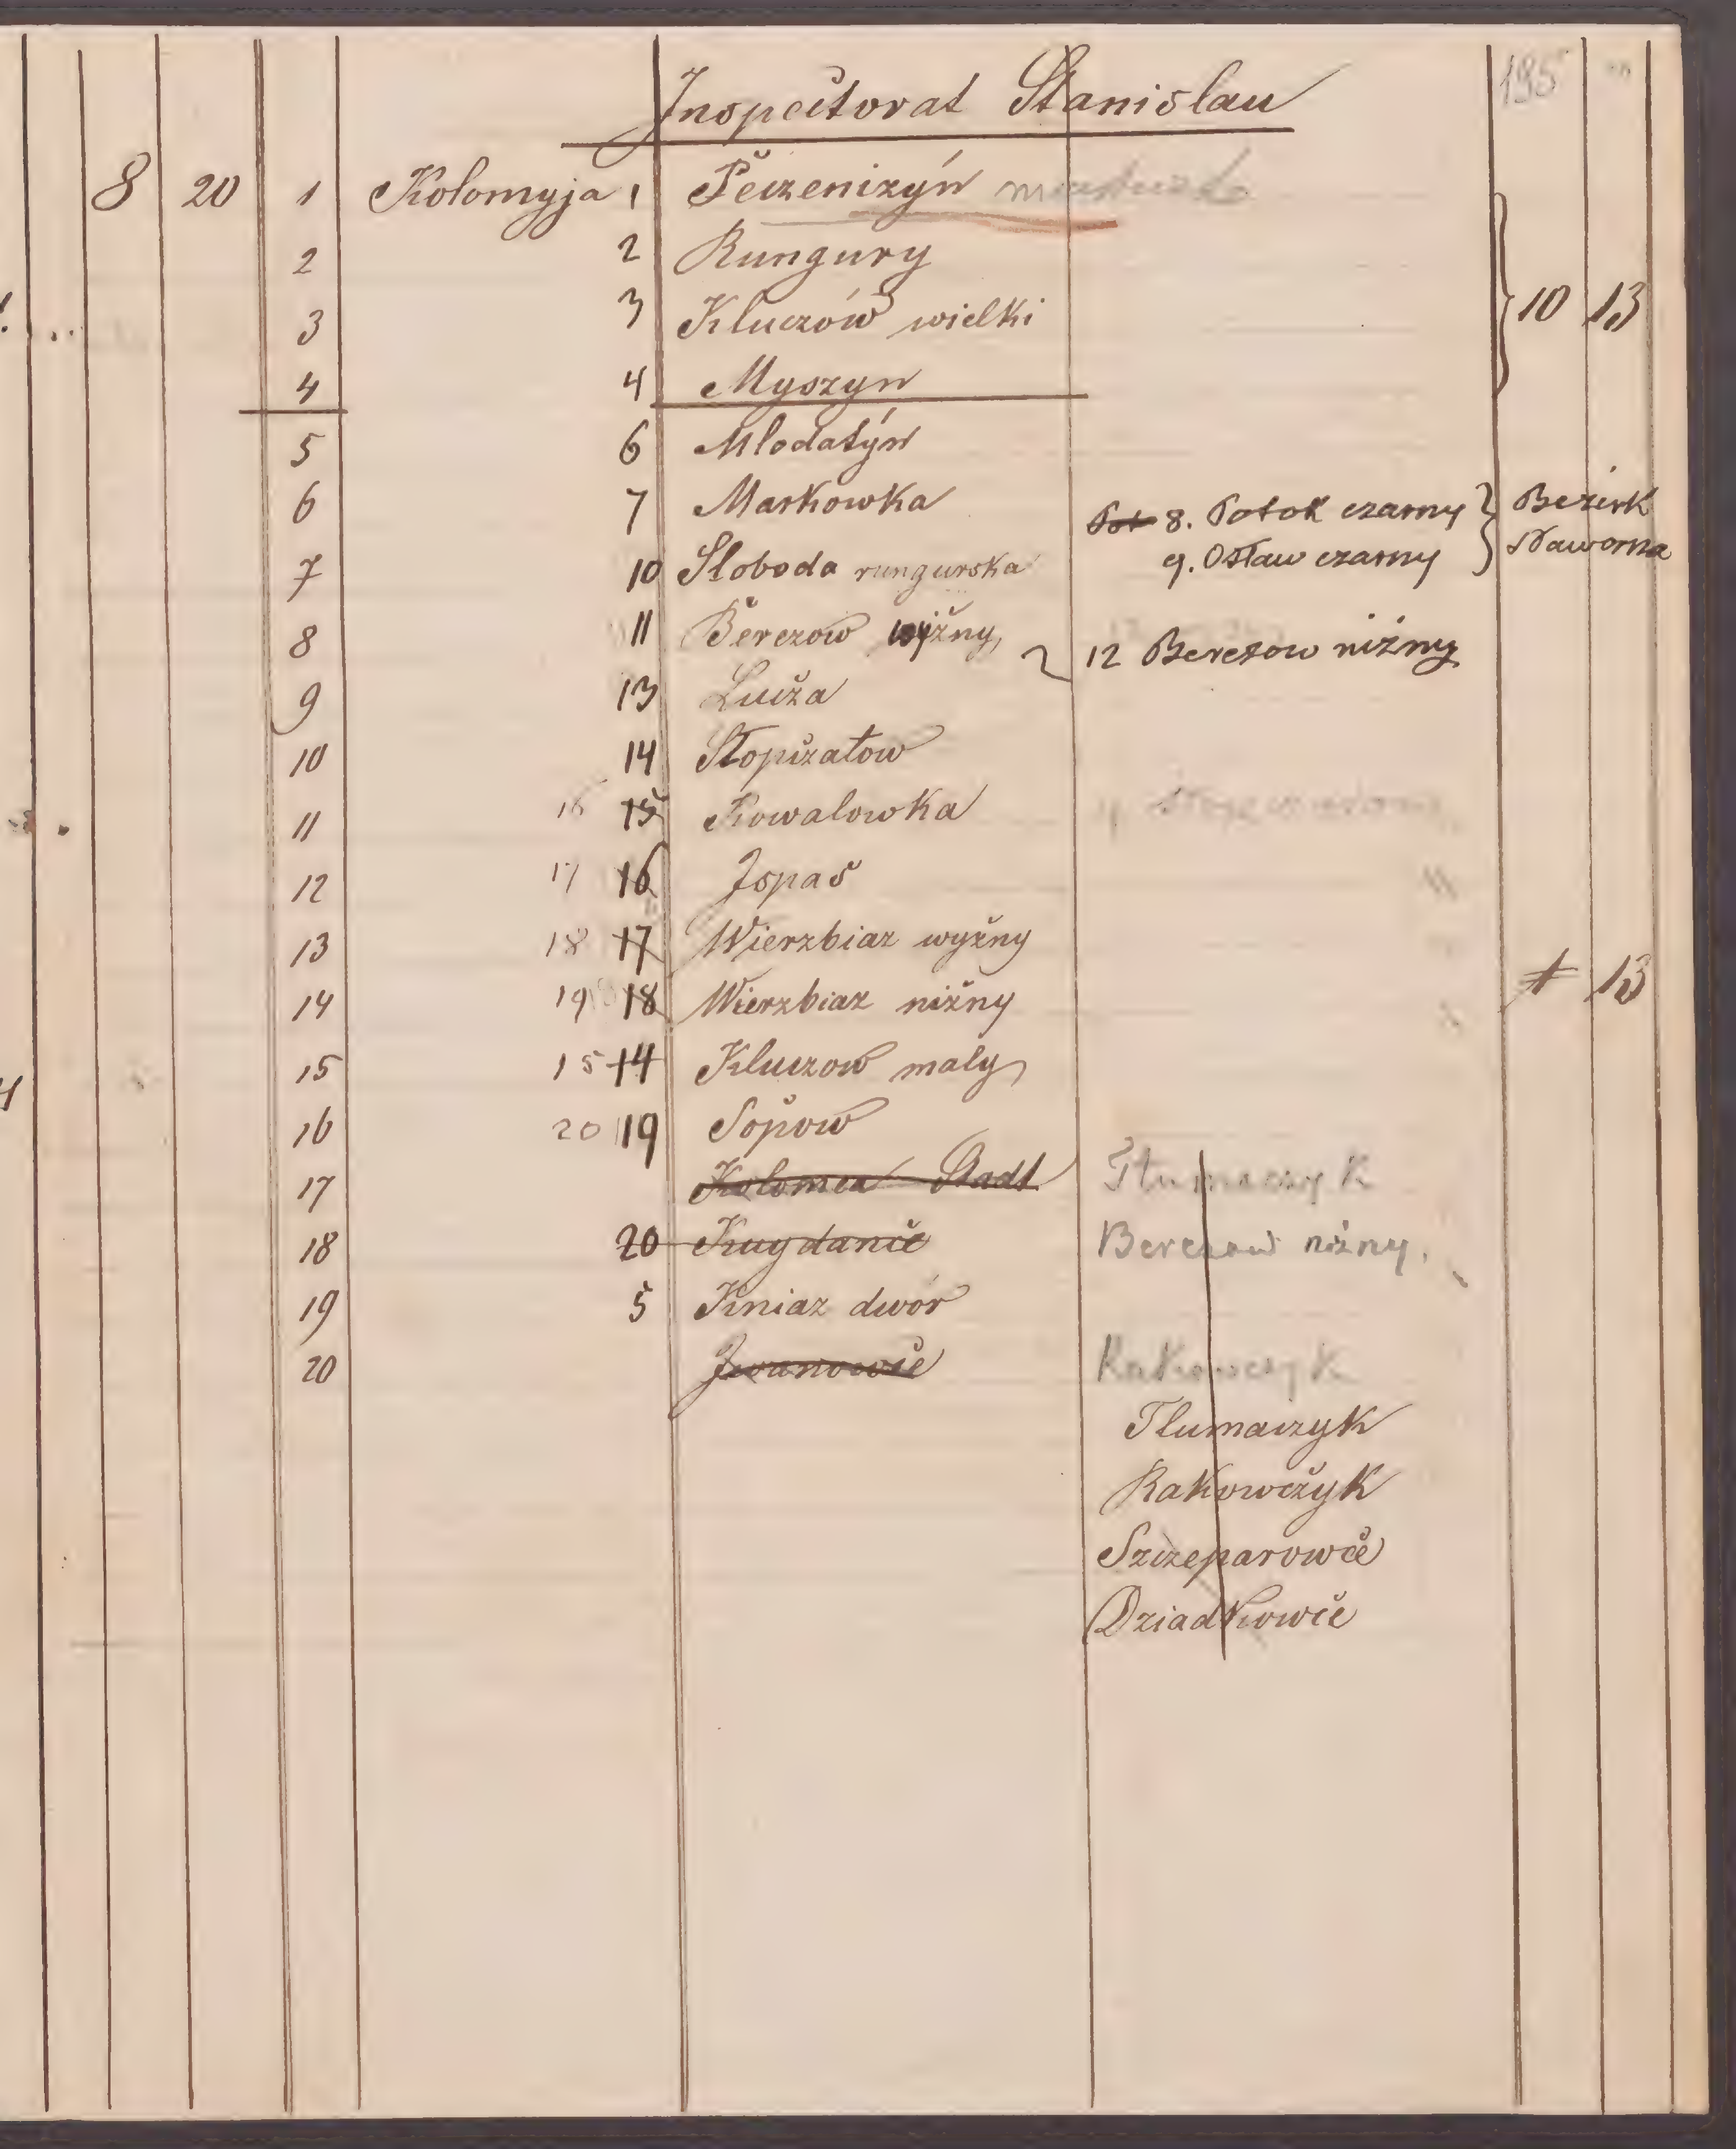 Inspectorat Stanislau
195
8 20 1 Kolomyja 1 Peczeniżyń
2 2 Rungury
3 3 Kluczów wielki 10 13
4 4 Myszyn
5 6 Mlodatýn
6 7 Markowka Pot 8. Potok czarny Bezirk
9. Osław czarny Naworna
7 10 Sloboda rungurska
8 11 Berezow wyžny 12 Berezow niżny
9 13 Lucža
10 14 Stopczatow
11 16 15 Kowalowka
12 17 16 Jspas
13 18 17 Wierzbiaz wyžny
14 19 18 Wierzbiaz nižny 1 13
15 15 14 Kluczow maly
16 20 19 Sopow
17 Kolomea Stadt Tłumaczyk
18 20 Kugdanie Berezow niżny.
19 5 Kniaz dwór
20 Iwanowce Rakowczyk
Tlumaczyk
Rakowczyk
Szczeparowce
Dziadkowce